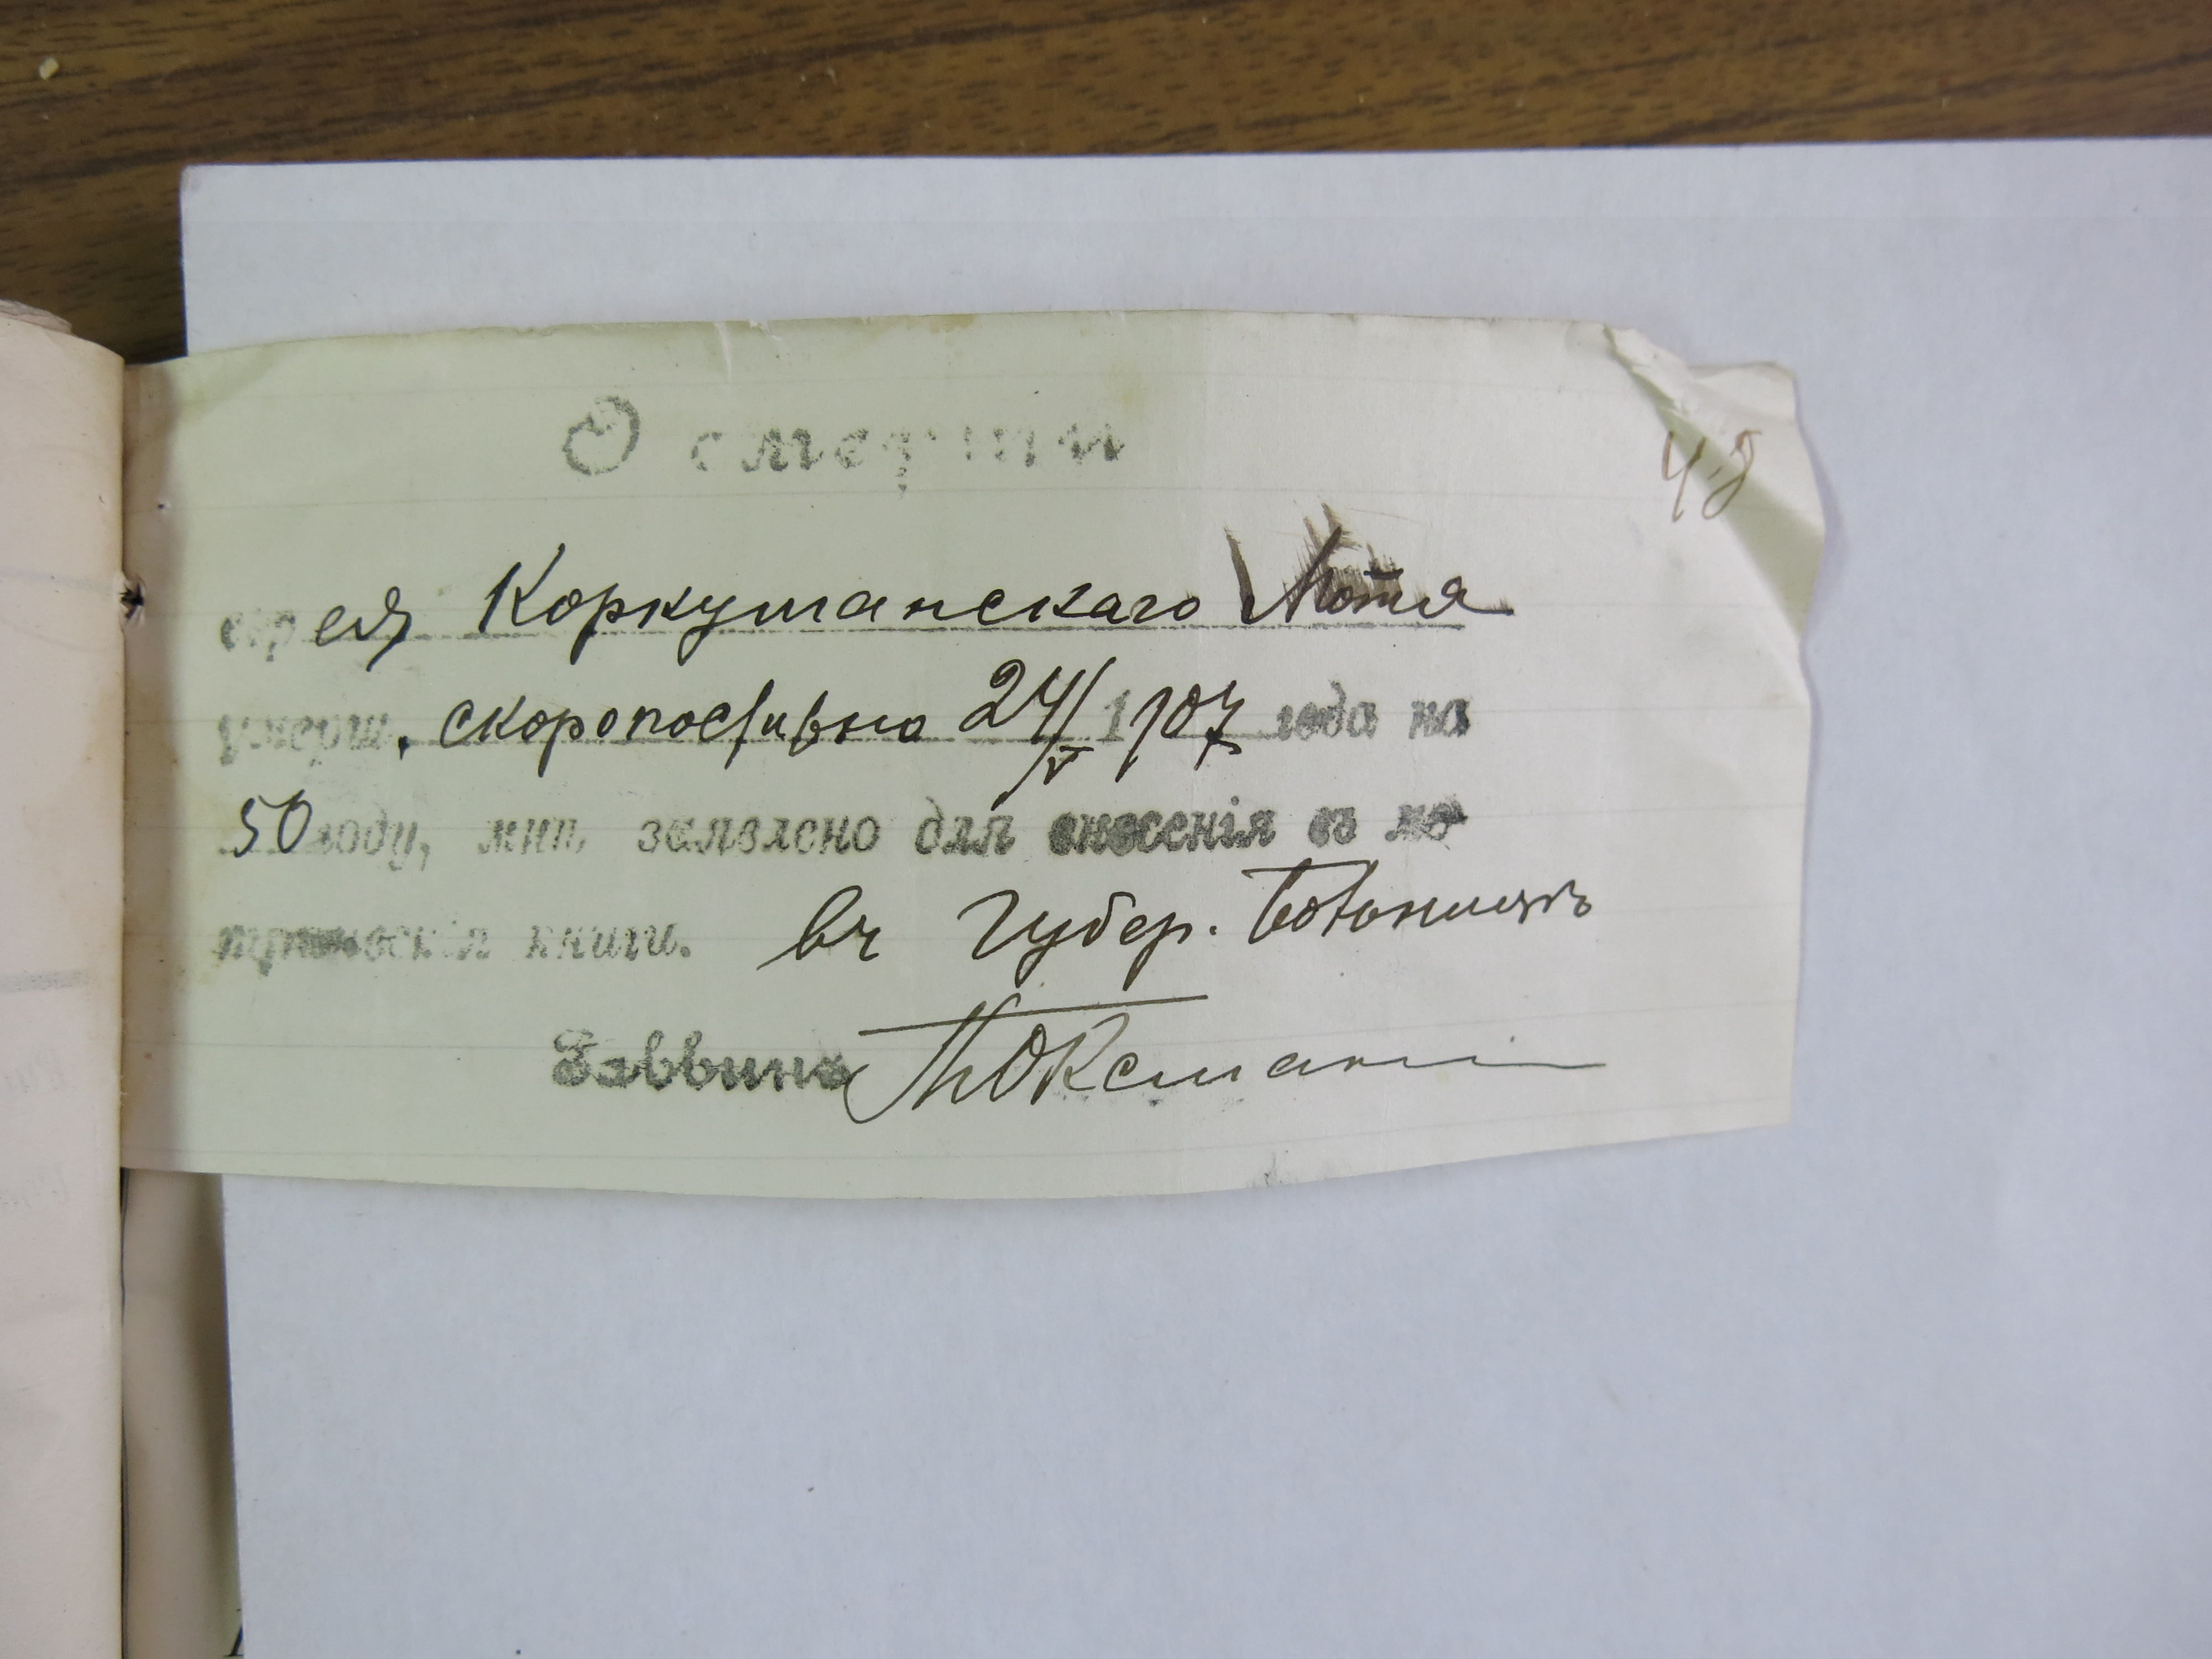 О смерти
48
еврея Коркушанскаго Мотя
умерш. скоропостижно 24/V 1907 года на
50 году, мнѣ заявлено для внесенія въ ме
трическія книги. въ Губер. Больницѣ
Раввинъ